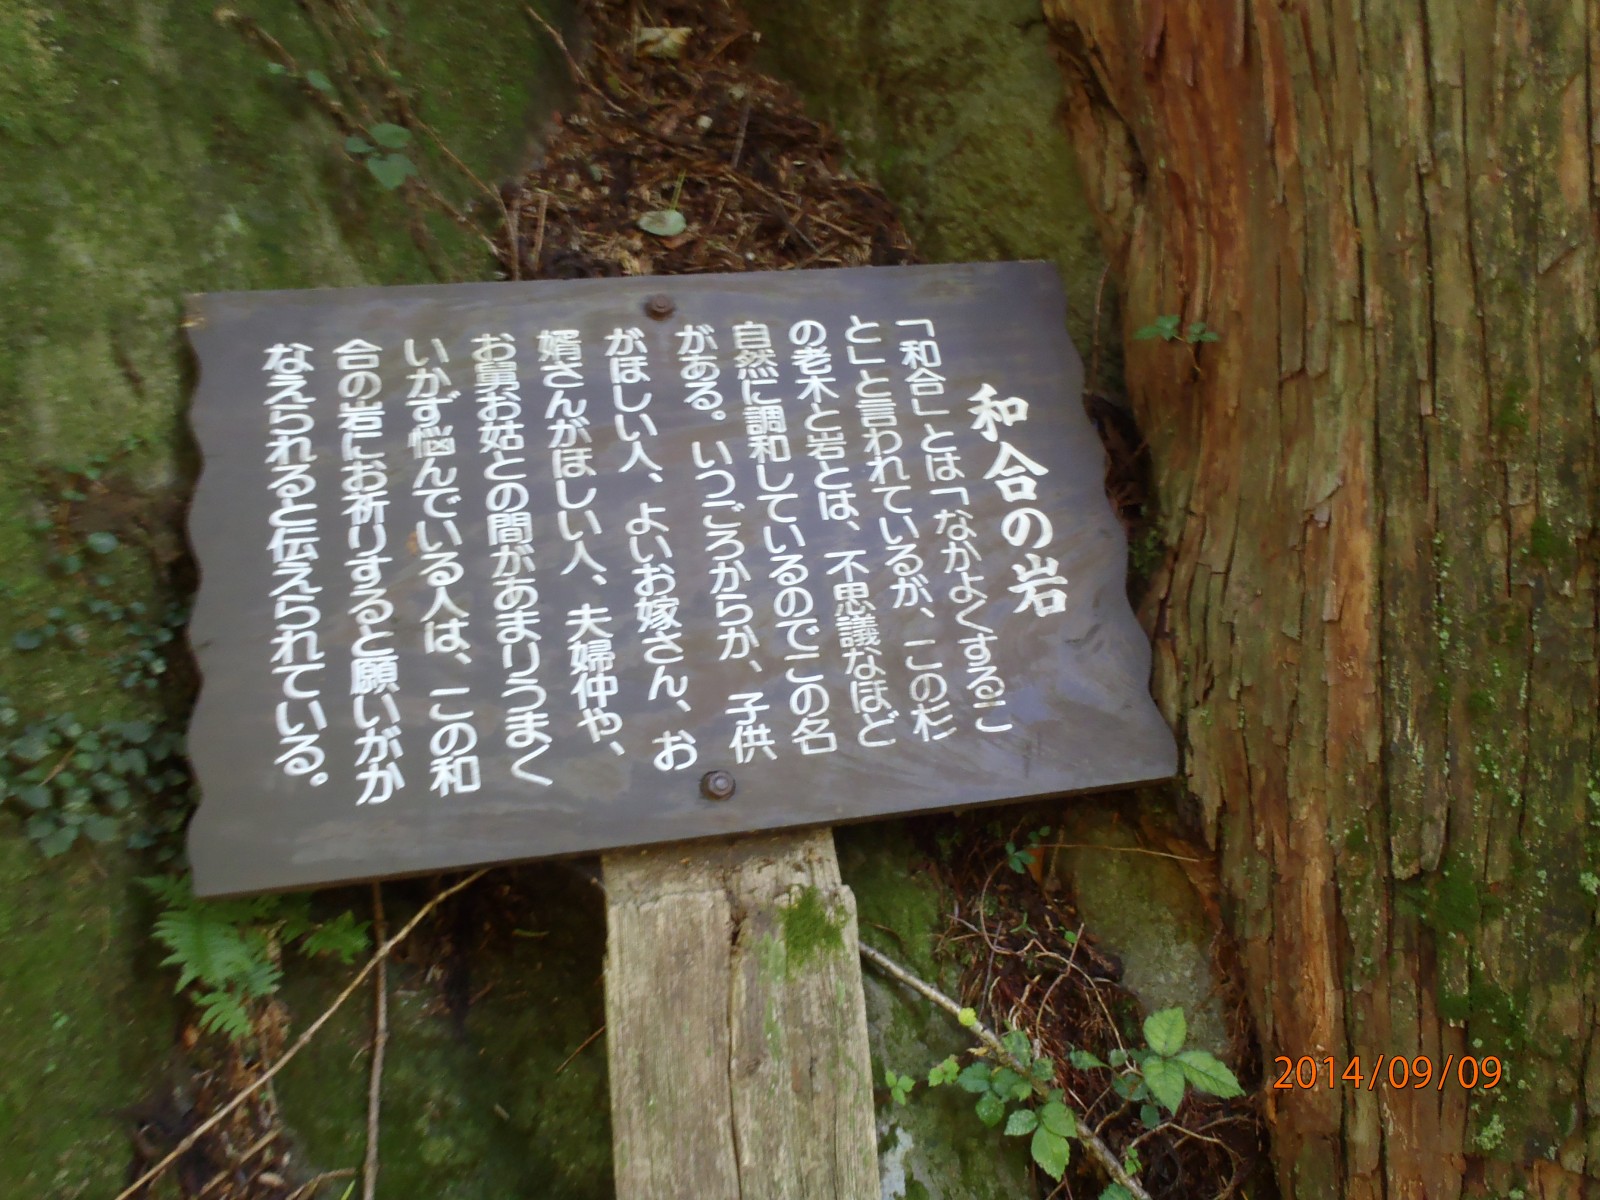 和合の岩
「和合」とは「なかよくするこ
と」と言われているが、この杉
の老木と岩とは、不思議なほど
自然に調和しているのでこの名
がある。いつごろからか、子供
がほしい人、よいお嫁さん、お
婿さんがほしい人、夫婦仲や、
お舅お姑との間があまりうまく
いかず悩んでいる人は、この和
合の岩にお祈りすると願いがか
なえられると伝えられている。
2014/09/09